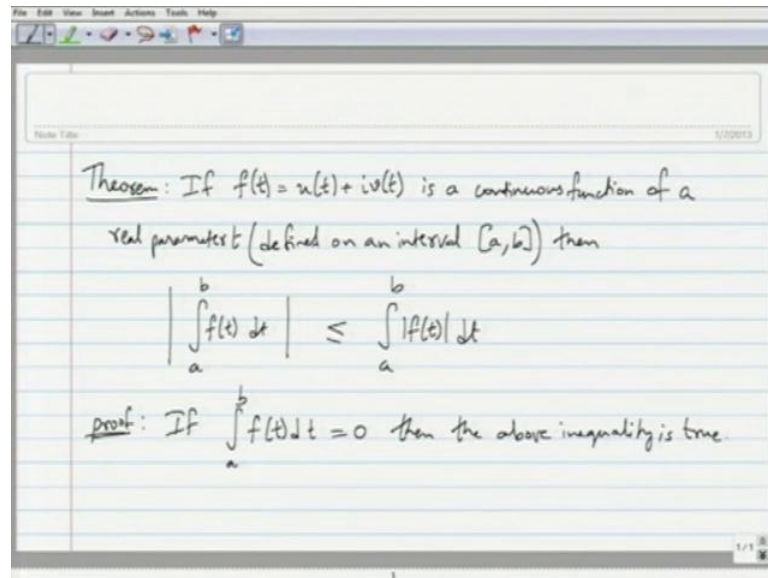 File Edit View Insert Actions Tools Help
Note Title
1/7/2013
Theorem: If f(t) = u(t) + iv(t) is a continuous function of a
real parameter t (defined on an interval [a,b]) then
| ∫_a^b f(t) dt | ≤ ∫_a^b |f(t)| dt
proof: If ∫_a^b f(t) dt = 0 then the above inequality is true.
1/1